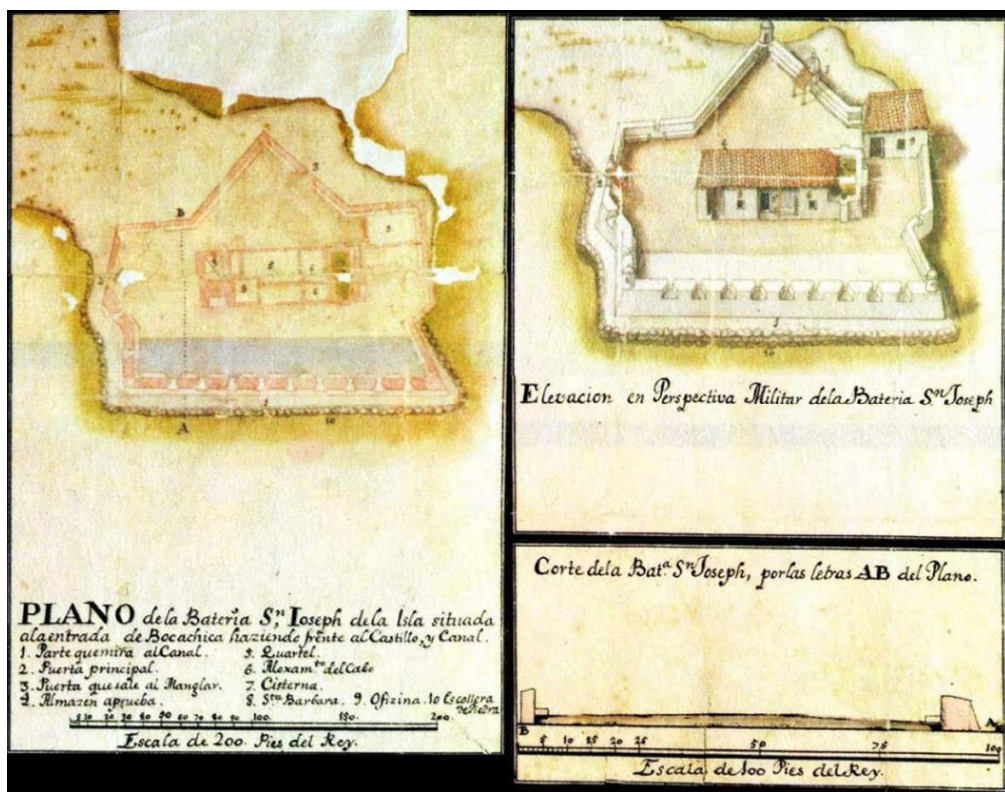 PLANO de la Bateria Sn. Ioseph de la Isla situada
ala entrada de Bocachica haziendo frente al Castillo, y Canal.
1. Parte que mira al Canal.
2. Puerta principal.
3. Puerta que sale al Manglar.
4. Almazen aprueba.
5. Quartel.
6. Aloxam.to del Cabo
7. Cisterna.
8. S.ta Barbara. 9. Ofizina. 10 Escollera
de Piedra
5 10 20 30 40 50 60 70 80 90 100. 150. 200.
Escala de 200. Pies del Rey.
Elevacion en Perspectiva Militar dela Bateria Sn. Joseph
Corte dela Bat.a Sn. Joseph, por las letras AB del Plano.
B A
5 10 15 20 25 50 75 100
Escala de 100 Pies del Rey.